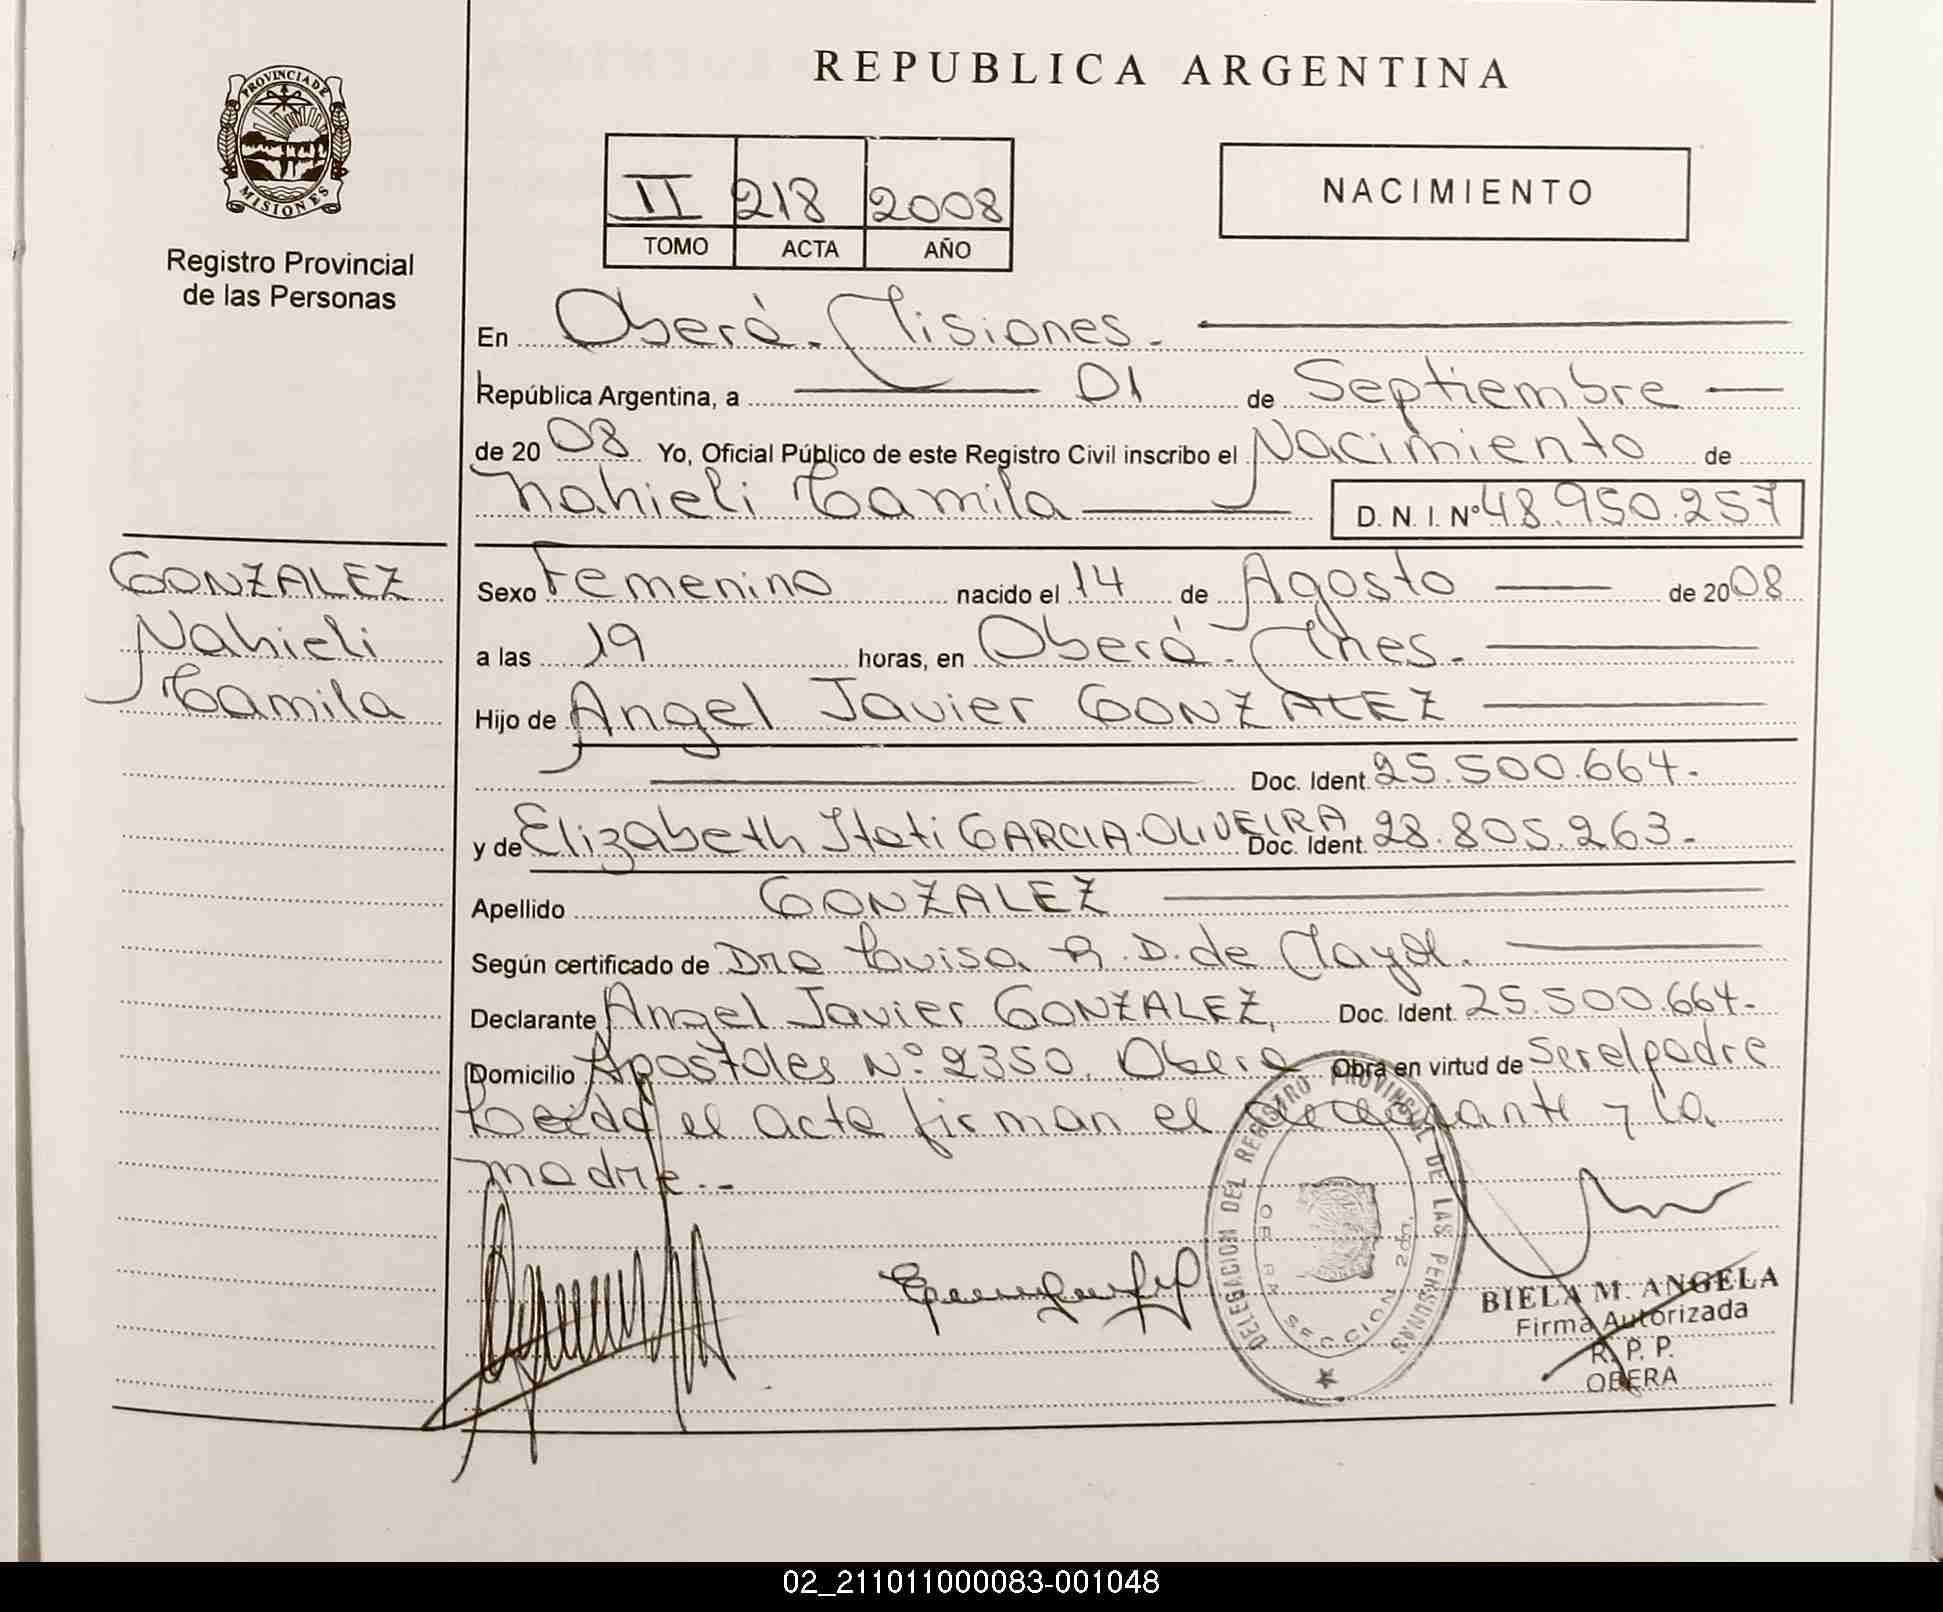 REPUBLICA ARGENTINA
PROVINCIA DE
MISIONES
Registro Provincial
de las Personas
II 218 2008
TOMO ACTA AÑO
NACIMIENTO
En Oberá. Misiones.
República Argentina, a 01 de Septiembre
de 2008 Yo, Oficial Público de este Registro Civil inscribo el Nacimiento de
Nahieli Camila D. N. I. Nº 48.950.257
GONZALEZ
Nahieli
Camila
Sexo Femenino nacido el 14 de Agosto de 2008
a las 19 horas, en Oberá. Mnes.
Hijo de Angel Javier GONZALEZ
Doc. Ident. 25.500.664.
y de Elizabeth Itati GARCIA OLIVEIRA Doc. Ident. 28.805.263.
Apellido GONZALEZ
Según certificado de Dra Luisa R. D. de
Declarante Angel Javier GONZALEZ, Doc. Ident. 25.500.664.
Domicilio Apostoles Nº 2350. Oberá Obra en virtud de ser el padre
Leida el acta firman el declarante y la
madre.-
DELEGACION DEL REGISTRO PROVINCIAL DE LAS PERSONAS
OBERA SECCION 2da.
BIELA M. ANGELA
Firma Autorizada
R. P. P.
OBERA
02_211011000083-001048